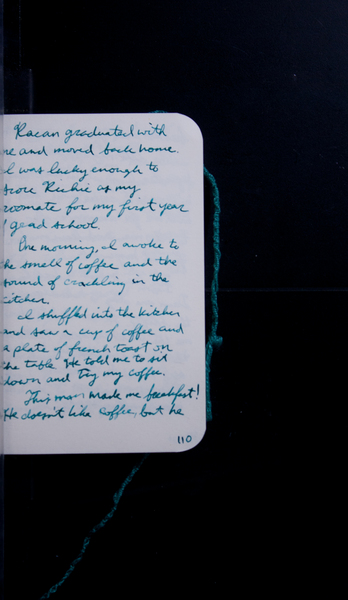 Racan graduated with
me and moved back home.
I was lucky enough to
score Richie as my
roomate for my first year
of grad school.
One morning, I awoke to
the smell of coffee and the
sound of crackling in the
kitchen.
I shuffled into the kitchen
and saw a cup of coffee and
a plate of french toast on
the table. He told me to sit
down and try my coffee.
This man made me breakfast!
He doesn't like coffee, but he
110